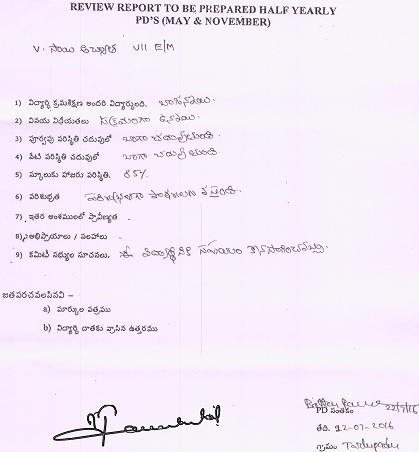 REVIEW REPORT TO BE PREPARED HALF YEARLY
PD'S (MAY & NOVEMBER)
V. సాయి VII E/M
1) విద్యార్థి క్రమశిక్షణ అందరి విద్యార్థులంది. బాగున్నాయి.
2) వినయ విధేయతలు సక్రమంగా ఉన్నాయి.
3) పూర్వపు పరిస్థితి చదువులో బాగా చదువుతుంది.
4) నేటి పరిస్థితి చదువులో బాగా చదువుతుంది
5) స్కూలుకు హాజరు పరిస్థితి. 85%
6) పరిశుభ్రత
7) ఇతర అంశములలో ప్రావీణ్యత -
8) అభిప్రాయాలు / సలహాలు -
9) కమిటీ సభ్యుల సూచనలు. ఈ విద్యార్థినికి సహాయం
జతపరచవలసినవి –
a) మార్కుల పత్రము
b) విద్యార్థి దాతకు వ్రాసిన ఉత్తరము
22/7/16
PD సంతకం
తేది. 12-07-2016
గ్రామం